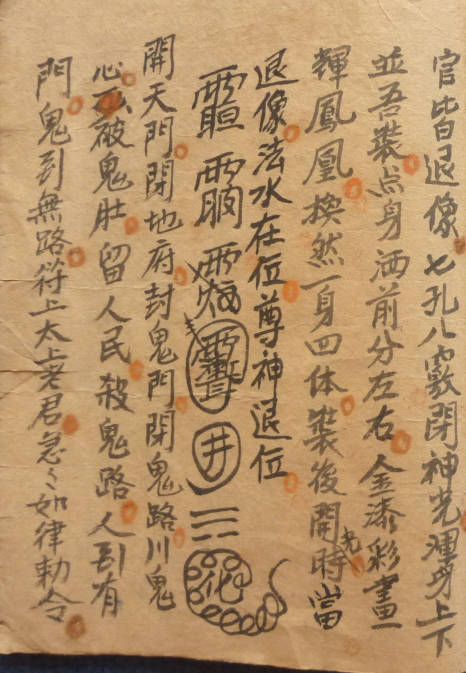 官皆退像七孔八竅閉神光渾身上下
並吾裝点身洒前分左右金漆彩畫一
輝鳳凰換然一身四体裝後開時光當
退像法水在位尊神退位
井三化
開天門閉地府封鬼門閉鬼路川鬼
心破鬼肚留人民殺鬼路人到有
門鬼到無路符上太上老君急〻如律勅令